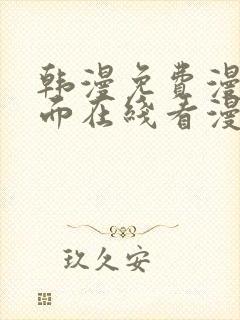 韩漫免费漫
而在线看漫
玖久安